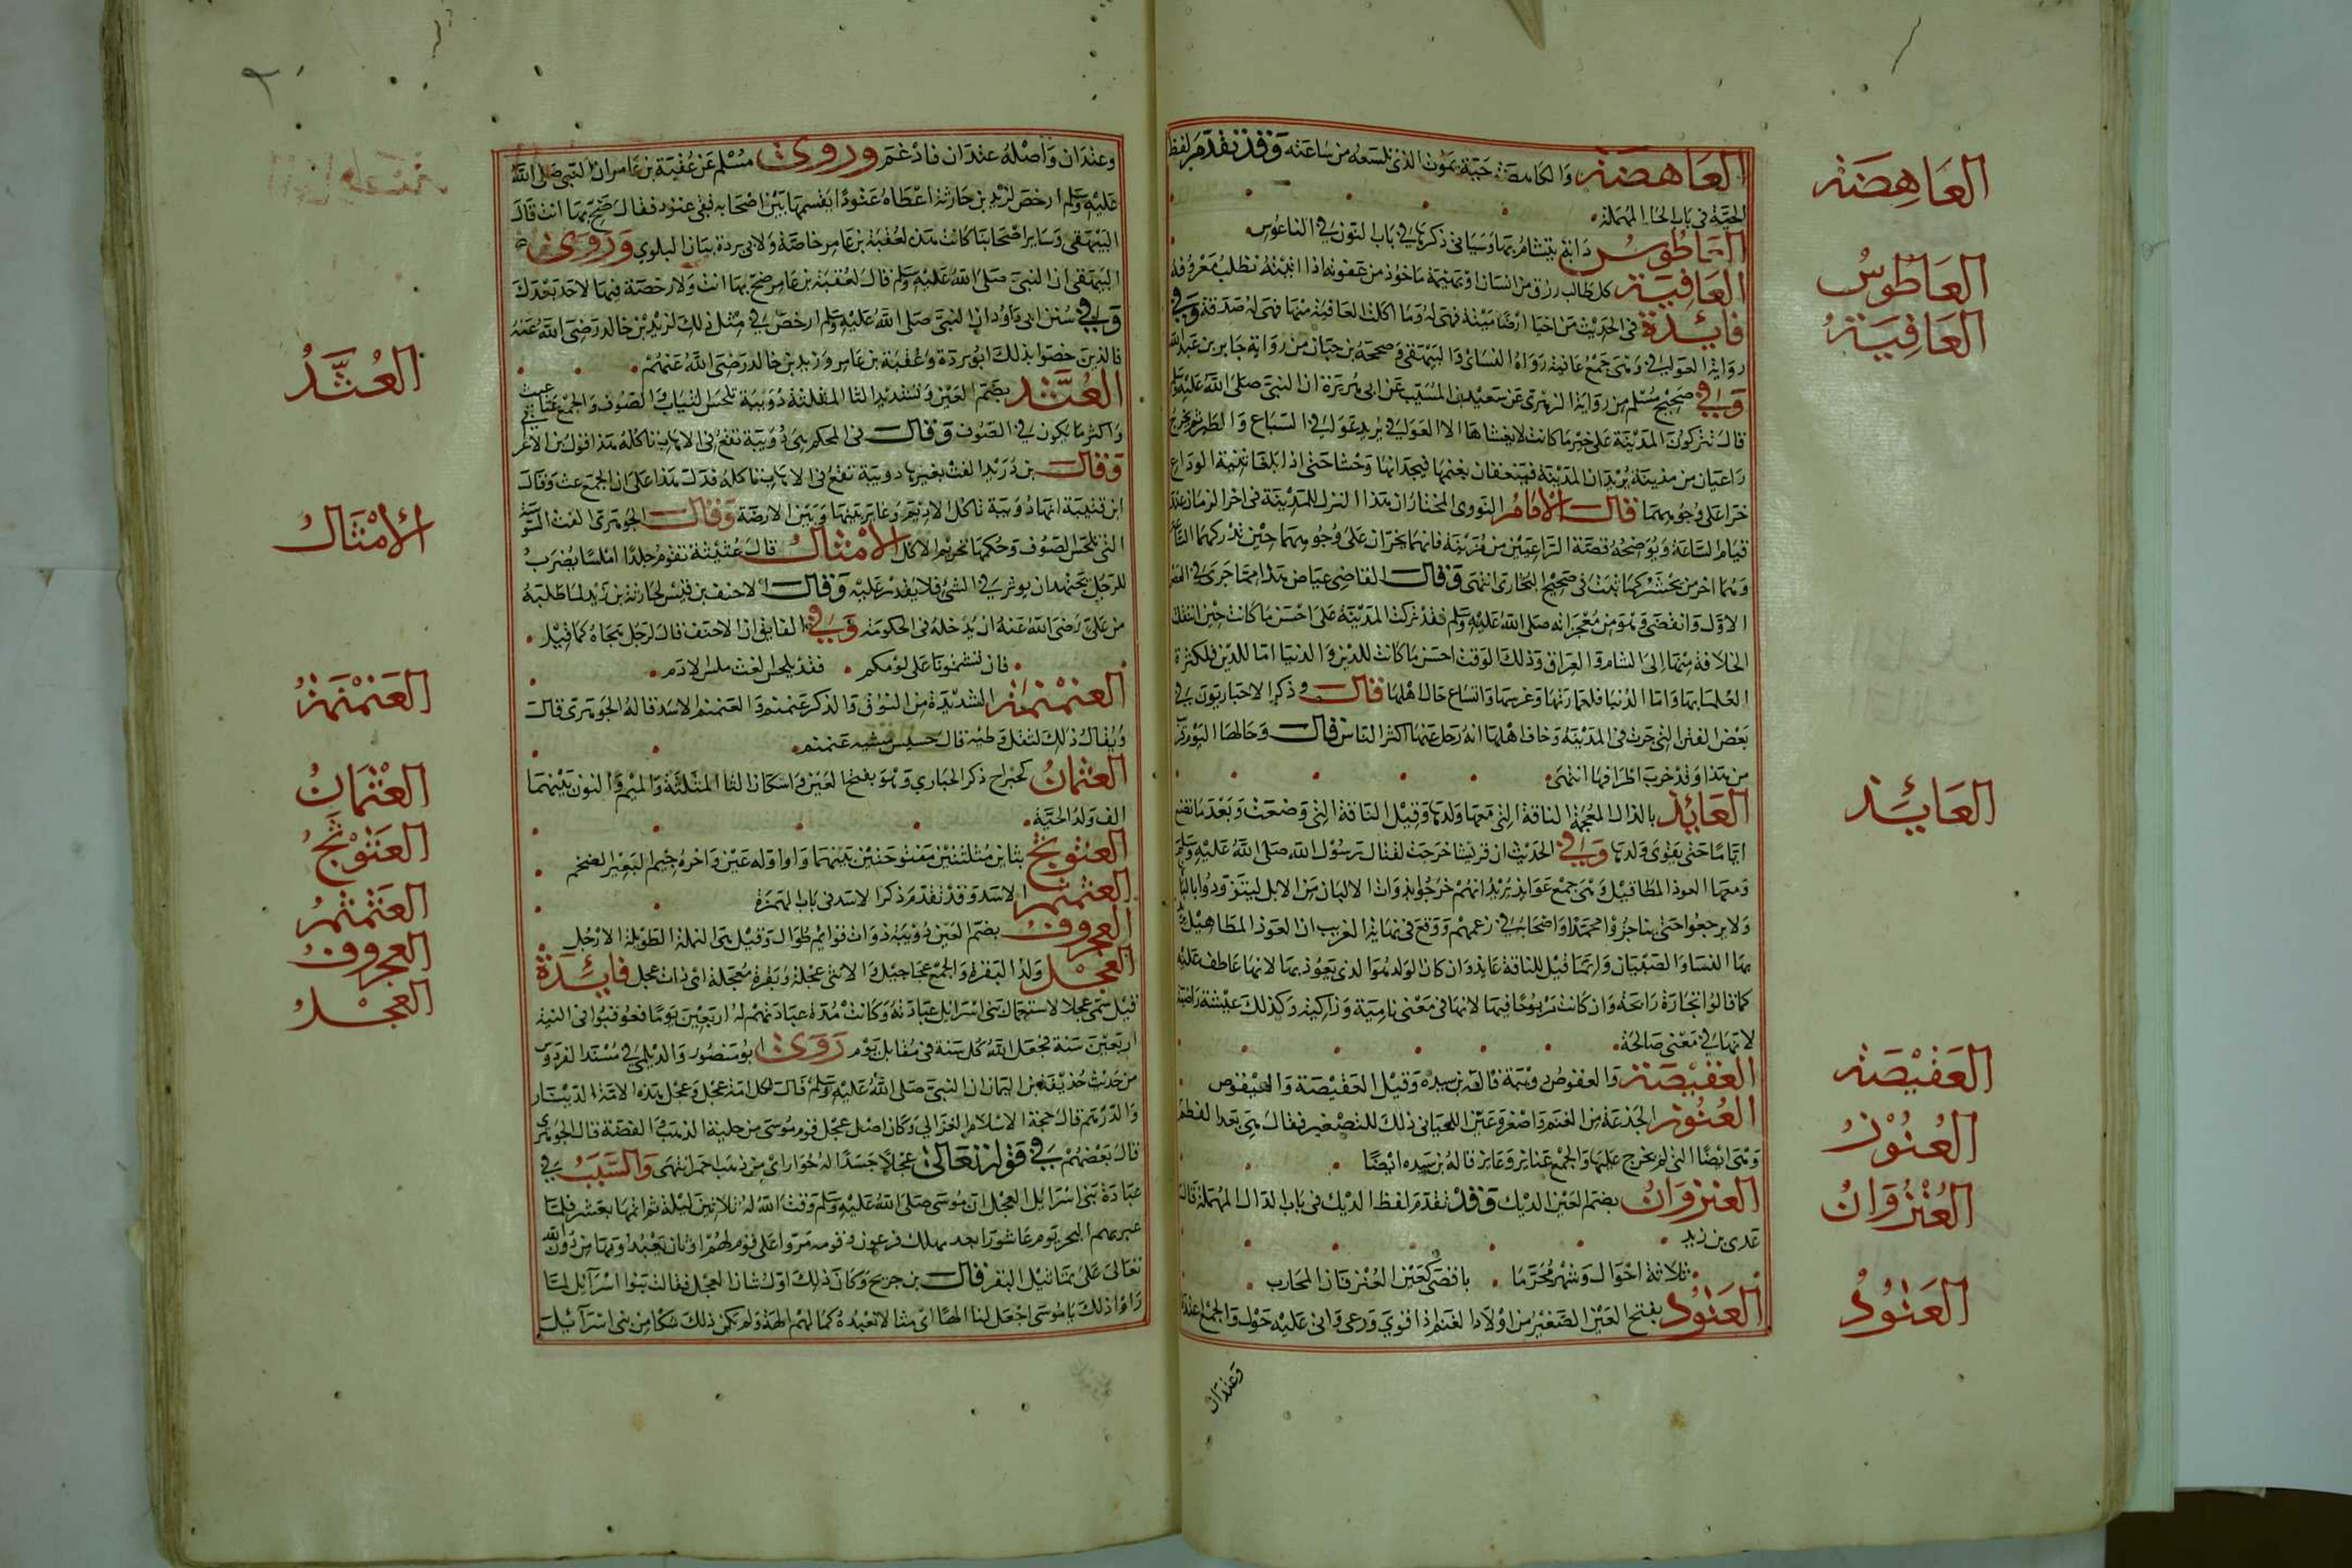 العَاهِضَة
العَاطُوسُ
العَافِيَةُ
العَائِذ
العَفْيْصَة
العُنُوْزُ
العُتْرُوَانُ
العَتُوْدُ
العَاهضَة وَالكامضَة حَيّة يمَوُت الذى تلسَعُه من سَاعَته وَقَدْ تقَدّمَ لفظ
الحيَّة فى بَاب الحَا المهْمَلة
العَاطُوسُ دَابّة يتشامُ بهَا وَسَيَاتى ذكرهَا فى بَاب النون فى الناعُوس
العَافِيَة كل طَالب رزق من انسَان اوْ بهَيْمَة مَاخوُذ من عَفوته اذا اتيْته تطلبُ مَعْرُوفه
فَائِدَة فى الحدَيْث مَن احيَا ارْضًا مَيْتة فهى لهُ وَمَا اكلت العَافيَة منهَا فهى لهُ صَدقة وَفى
روَاية العَوافى وَهىَ جَمْع عَافيَة رَوَاهُ النسَائى وَالبَيْهَقى وَصَححَهُ بن حبَان مَنْ روَاية جَابر بن عَبد الله
وَفى صَحِيْح مُسْلم من روَاية الزهْرى عَن سَعيْد بن المسَيّب عَن ابى هُرَيْرَة ان النبىَّ صَلى الله عَليْهِ وَسَلم
قالَ تتركوُن المدَيْنة عَلى خيْر مَا كانت لا يغشاهَا الا العَوَافى يريد عَوَافى السّبَاع وَالطّيْر ثم يخرُج
رَاعيَان من مزينة يُريْدان المدَيْنة فيَنعقان بغنمهَا فيجدَانهَا وَحْشا حَتى اذا بلغَا ثنيّة الوَدَاع
خرّا عَلى وُجُوههمَا قال الامَامُ النوَوى المختارُ ان هَذا الترك للمدَيْنة فى اخر الزمَان عند
قيَام السّاعَة وَيُوَضحُهُ قصّة الرّاعيَيْن من مُزيْنة فانهمَا يخرّان عَلى وُجُوههمَا حيْن تدْركهُمَا السّاعَة
وَهُما اخر مَن يحشَرْ كمَا ثبَتَ فى صَحِيْح البخارى انتهَى وَقال القاضى عيَاض هَذا ممّا جَرَى فى العَصْر
الاوّل وَانقضَى وَهُوَ مِن مُعْجزَاته صَلى اللهُ عَليْهِ وَسَلم فقدْ تركت المدَيْنة عَلى احْسَن مَا كانت حيْن انتقلت
الخلافة مِنهَا إلى الشام وَالعِرَاق وَذلكَ الوَقت احسَن مَا كانت للدّين وَالدنيَا امّا للدّين فلكثرة
العُلمَا بهَا وَامّا الدُنيَا فلعمَارَتهَا وَغرسهَا وَاتسَاع حَال اهْلهَا قال وَذكر الاخبَاريّون فى
بَعْض الفتن التى جَرَت فى المدَيْنة وَخاف اهْلهَا انهُ رَحل عَنهَا اكثر النّاس قال وَحَالهَا اليَوْم قريب
من هَذا وَقدْ خربَ اطرَافهَا انتهَى
العَائِذ بالذال المعْجمَة الناقة التى مَعهَا وَلدهَا وَقيْل النّاقة التى وَضعَت وَبَعْدَ مَا تضع
ايّامًا حَتى يَقوَى وَلدهَا وَفى الحَديْث ان قرَيشا خرَجَت لقتال رَسُوْل الله صَلى اللهُ عَليْهِ وَسَلم
وَمعهَا العوذ المطافيْل وَهىَ جمْع عَائذ يُريْدُ انهُمْ خرَجُوا بذوَات الالبَان مَن الابل ليتزوّدُوا بالبَانهَا
وَلا يرجعُوا حَتى يناجزُوا محمّدًا وَاصْحَابه فى زعمهمْ وَوَقعَ فى نهَاية الغريب ان العَوذ المطافيْل
بهَا النسَا وَالصّبْيَان وَانّمَا قيْل للناقة عَايذ وَان كان الوَلد هُوَ الذى يَعُوْذ بهَا لانهَا عَاطف عَليْه
كمَا قالوُا تجَارَة رَابحَة وَان كانت مَرْبُوحًا فيهَا لانهَا فى مَعْنى نامِيَة وَزاكيَة وَكذلكَ عيْشة رَاضيَة
لانهَا فى مَعْنى صَالحَة
العَفْيْصَة وَالعفوُص دوَيْبَة قالهُ بن سيْده وَقيْل العَفيْصَة وَالعَيْفوص
العُنُوز الجذعَة من الغنم وَاصْغر وَعَيّن اللحيَانى ذلكَ للتصْغير فقالَ هِىَ بَعدَ الفطم
وَهْىَ ايْضًا التى لمْ يخرج عَليهَا وَالجمْع عَنايز وَعَايز قالهُ بن سَيده ايْضًا
العتروَانُ بضم العَيْن الديك وَقَدْ تقدّمَ لفظ الديك فى بَاب الدال المهْمَلة قال
عَدى بن زيد
ثلاثة احْوَال وَشهْر مُحَرّمًا بافضى كعَيْن العُتْرفان المحَارب
العَتُوْد بفتح العَيْن الصّغيْر من اوْلاد الغنم اذا قوىَ وَرعى وَاتى عَليْه حَوْل وَالجمْع اعتدَة
وَعتدَان
وعتدَان وَاصْلهُ عتدَان فادْغمَ وَرَوَى مُسْلم عَن عُقبَة بن عَامر ان النبىَّ صَلى اللهُ
عَليْهِ وَسَلم ارخصَ لزيْد بن حَارثة اعْطاهُ عَتوُدًا يقسمهَا بَيْن اصْحَابه فبَقى عَتود فقالَ ضَحّ بهَا انت قالَ
البَيْهَقى وَسَاير اصْحَابنا كانت هَذه لعُقبَة بن عَامر خاصّة وَلابى بردة بن نيَار البلوى وَرَوَى
البَيْهَقى ان النبىَّ صَلى اللهُ عَليْهِ وَسَلم قالَ لعُقبَة بن عَامر ضحّ بهَا انت وَلا رخصَة فيهَا لاحَد بَعْدَكَ
وَفى سُنن ابى دَاوُد ان النبىَّ صَلى اللهُ عَليْهِ وَسَلم ارخصَ فى مثل ذلكَ لزيْد بْن خالد رَضىَ اللهُ عَنهُ
فالذيْن خصّوا بذلكَ ابوُ بردَة وَعُقبَة بن عَامر وَزيد بن خالد رَضىَ اللهُ عَنهُمْ
العُثَّة بضَمّ العَيْن وَتشديْد الثا المثلثة دُوَيبَة تلحَسُ الثيَاب وَالصّوُف وَالجمْع عُثّ
وَاكثر مَا يكوُن فى الصّوُف وَقال فى المحكم هىَ دُوَيبَة تقعُ فى الاهَاب تاكلهُ هَذا قول بن الاعرَ
وَقال بن دُرَيْد العثّ بغيْر هَا دوَيبَة تقعُ فى الاهَاب تاكلهُ فدَلّ هَذا عَلى ان الجمَع عث وَقالَ
ابن قتيبَة انهَا دُوَيبَة تاكل الادِيْم وَغايرَ بَيْنهَا وَبَيْن الارضَة وَقال الجوْهَرى العُثة السُوْسَة
التى تلحَسُ الصّوُف وَحكمهَا تحريْم الاكل الامْثال قالَ عُثَيْثة تقرم جلدًا املسًا يضرَبُ
للرّجُل يَجْتهدُ ان يوثر فى الشئ فلا يقدر عَليْه وَقال الاحنف بن قيْس لحَارثة بن زيْد لمَا طلبَهُ
من عَلىّ رَضىَ اللهُ عَنهُ ان يُدْخلهُ فى الحكوُمَة وَفى الفايق ان الاحنف قالَ لرَجُل هَجَاهُ كمَا قيْل
فان تشتموُنا عَلى لوُمكم فقدْ يلحس العث ملس الادم
العَثمْثمَةُ الشديْدَة من النوُق وَالذكر عَثمثم وَالعَثمثم الاسَد قالهُ الجَوْهَرى قالَ
وَيُقالُ ذلكَ لثقل وَطيه قالَ خبيس مشيه عَثمثم
العُثمَانُ كجرَاح ذكر الحبَارى وَهُوَ بفتح العَيْن وَاسكان الثا المثلثة وَالميْم وَالنون بَيْنهمَا
الف وَلدُ الحيّة
العَثوثجُ بثايْن مُثلثتيْن مَفتوحَتيْن بَيْنهُمَا وَاوَ اوّلهُ عَيْن وَاخرُهُ جيْم البَعيْر الضخم
العَثمثمُ الاسَد وَقدْ تقدّمَ ذكرُ الاسَد فى بَاب الهَمزَة
العُجروفُ بضَمّ العَيْن دُوَيبَة ذوَات قوَايم طُوَال وَقيْل هىَ النملة الطوَيلة الارْجُل
العِجْل وَلدُ البَقرة وَالجمْع عجَاجيْل وَالانثى عجْلة وَبقرة مُعجلة اىْ ذات عجل فَائِدَة
قيْل سُمّىَ عجلا لاستعجَال بَنى اسْرَايل عبَادَتهُ وَكانتْ مُدّة عبَادتهمْ لهُ اربَعيْن يَوْمًا فعُوقبُوا فى التيه
اربَعيْن سَنة فجعَلَ اللهُ كلّ سَنة فى مُقابل يَوْم رَوَى ابوُ مَنصُور وَالديْلمى فى مُسْنَد الفردَوْس
من حَديْث حُذيْفة بن اليمَان ان النبىَّ صَلى اللهُ عَليْهِ وَسَلمَ قالَ لكل امّة عجْل وَعجْل هَذه الامّة الدّيْنار
وَالدرْهَم قالَ حجّة الاسْلام الغزَالى وَكانَ اصْل عجْل قوْم مُوسَى من حليَة الذهَب وَالفضّة قالَ الجَوْهَرى
قالَ بَعْضهُمْ فى قَوْله تعَالَى عجْلًا جَسَدًا لهُ خوَار اىْ من ذهَب احْمر انتهَى وَالسَّبَبُ فى
عبَادَة بَنى اسْرَايل العجْل ان مُوسَى صَلى اللهُ عَليْهِ وَسَلم وَقت اللهُ لهُ ثلاثيْن ليْلة ثم اتمهَا بعَشر فلمّا
عبر بهم البحْر يَوْم عَاشورَا بَعد مهلك فرعَون وَقومه مَرّوا عَلى قوْم لهُمْ اوْثان يَعْبُدُونهَا من دُوْن الله
تعَالى عَلى تمَاثيْل البَقر قال بن جرَيج وَكانَ ذلكَ اوّل شان العجْل فقالت بَنوُا اسْرَائيْل لمّا
رَاوْا ذلكَ يَا مُوسَى اجْعَل لنا الهًا اىْ مثالا نعْبُدهُ كمَا لهُم الهَة وَلم يكنْ ذلكَ شكا من بَنى اسْرَآئيْلَ
العُثَّةُ
الأمْثَالُ
العَثَمْثَمَةُ
العُثْمَانُ
العَثَوْثَجُ
العَثَمْثَمُ
العجروفُ
العجْلُ